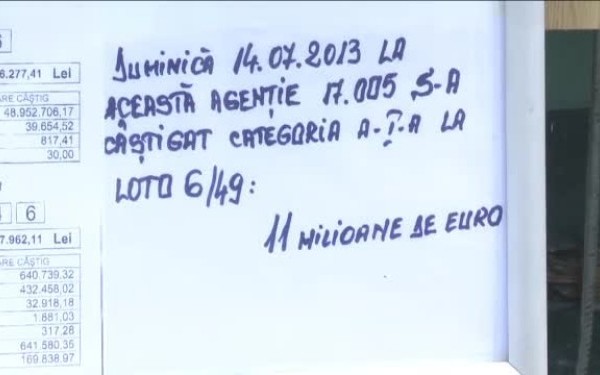 6
6.277,41 Lei
ARE CÂŞTIG
48.952.706,17
39.654,52
817,41
30,00
6
7.962,11 Lei
ARE CÂŞTIG
640.739,32
432.458,02
32.918,18
1.681,03
317,28
641.580,35
169.838,97
DUMINICĂ 14.07.2013 LA
ACEASTĂ AGENȚIE 17.005 S-A
CÂȘTIGAT CATEGORIA A-I-A LA
LOTO 6/49:
11 MILIOANE DE EURO